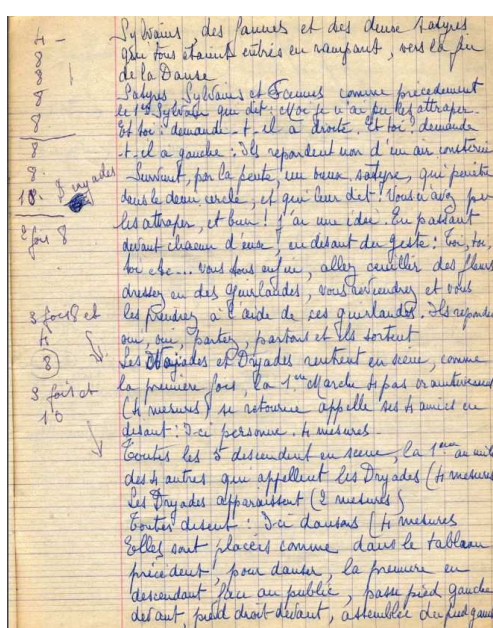 4 -
8
8
8
8
8
8.
10. 8 nyades
2 fois 8
3 fois 8 et
4
8
3 fois et
10
Sylvains, des faunes et des deux satyres
qui tous étaient entrés en rampant, vers la fin
de la Danse
Satyres Sylvains et Faunes comme précédement
le 1er Sylvain qui dit : Moi je n'ai pu les attraper.
Et toi : demande-t-il à droite. Et toi : demande
-t-il à gauche : Ils repondent non d'un air consterné
Survient, par la pente, un vieux satyre, qui pénètre
dans le demi cercle, et qui leur dit : Vous n'avez pu
les attraper, et bien ! j'ai une idée. En passant
devant chacun d'eux, en disant du geste : toi, toi,
toi etc... vous tous enfin, allez cueillir des fleurs
dressez en des guirlandes, vous reviendrez et vous
les prendrez à l'aide de ces guirlandes. Ils repondent
oui, oui, partez, partons et ils sortent
Les Nayades et Dryades rentrent en scène, comme
la première fois, la 1ère Marche 4 pas
(4 mesures) se retourne appelle ses 4 amies en
disant : Ici personne. 4 mesures.
Toutes les 5 descendent en scène, la 1ère
des 4 autres qui appellent les Dryades (4 mesures
Les Dryades apparaissent (2 mesures)
Toutes disent : Ici dansons (4 mesures
Elles sont placées comme dans le tableau
précédent, pour danser, la première en
descendant face au public, passe pied gauche
devant, pied droit devant, assemblée du pied gauche